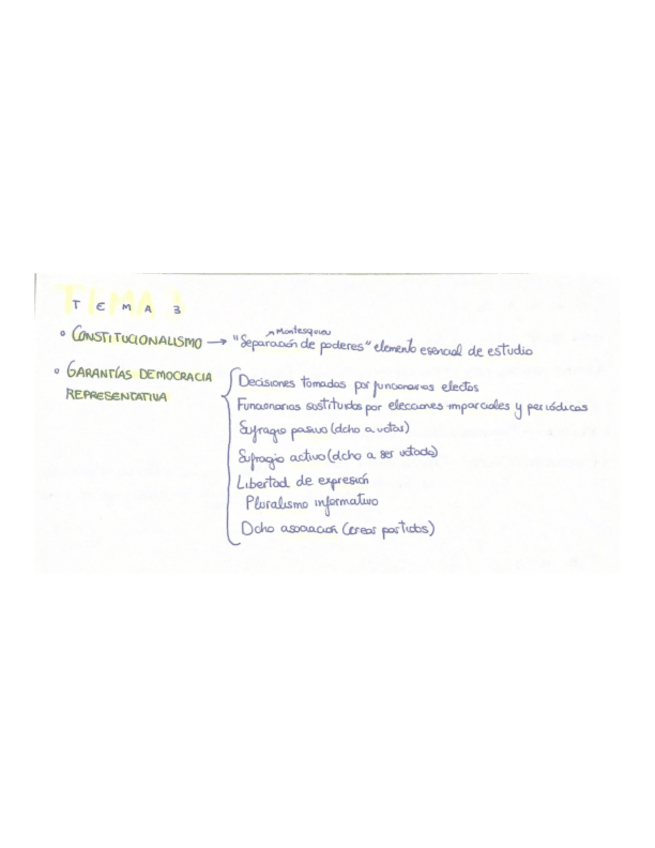 TEMA 3
Montesquieu
° CONSTITUCIONALISMO → "Separación de poderes" elemento esencial de estudio
° GARANTÍAS DEMOCRACIA
REPRESENTATIVA
Decisiones tomadas por funcionarios electos
Funcionarios sustituidos por elecciones imparciales y periódicas
Sufragio pasivo (dcho a votar)
Sufragio activo (dcho a ser votado)
Libertad de expresión
Pluralismo informativo
Dcho asociación (crear partidos)